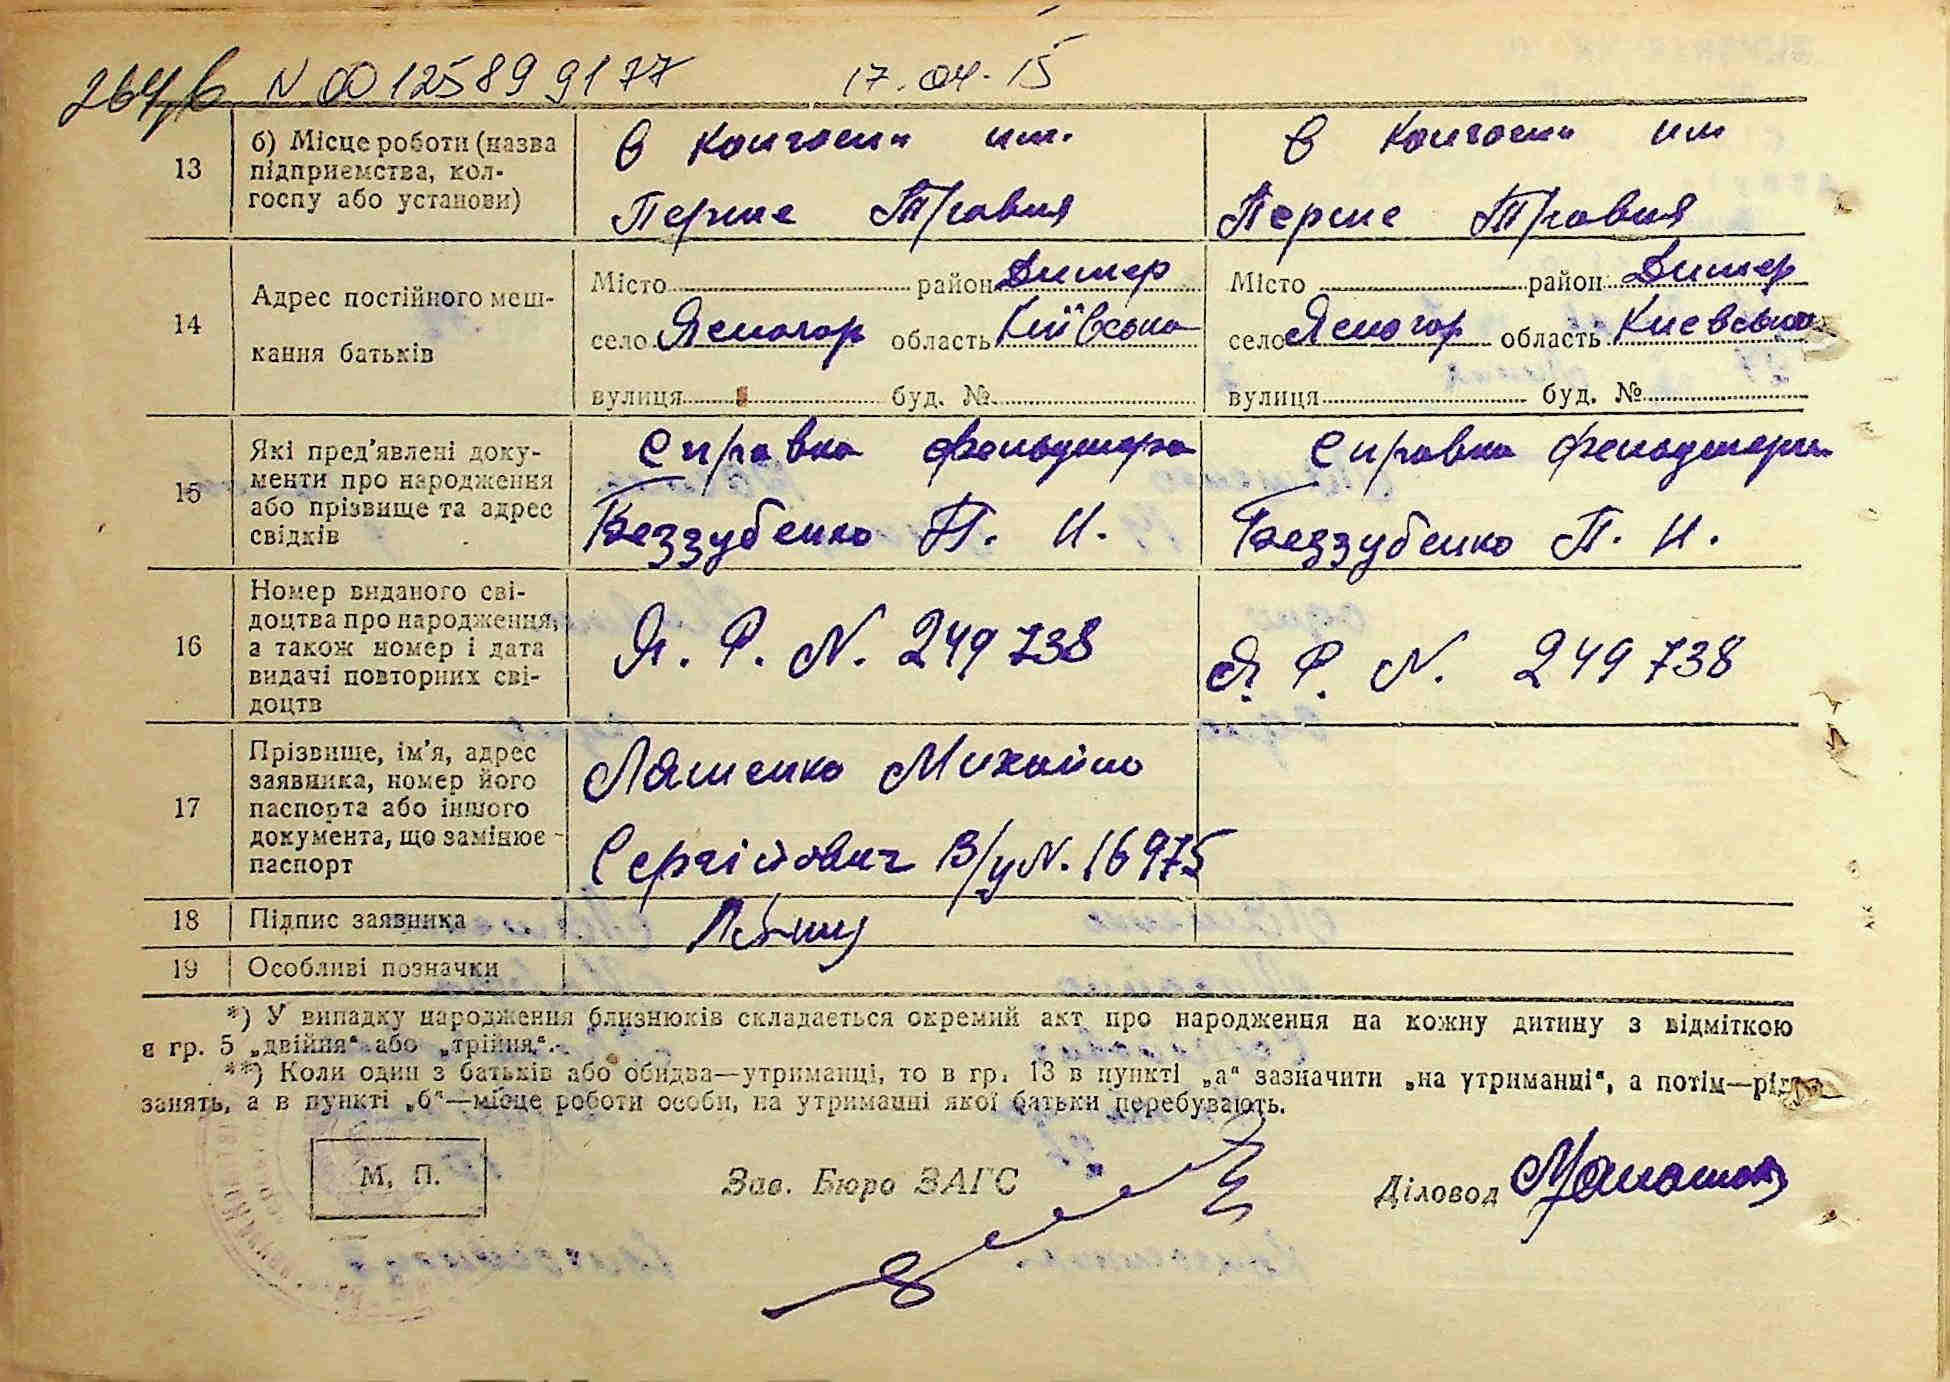 264/б N 00125899177 17.04.15
13 б) Місце роботи (назва підприємства, колгоспу або установи)
в колгоспи им. в колгоспи им
Перше Травня Перше Травня
14 Адрес постійного мешкання батьків
Місто район Димер Місто район Димер
село Ясногор область Київська село Ясногор область Киевська
вулиця буд. № вулиця буд. №
15 Які пред'явлені доку-
менти про народження
або прізвище та адрес
свідків
Справка фельдшера Справка фельдшера
Беззубенко П. И. Беззубенко П. И.
16 Номер виданого сві-
доцтва про народження,
а також номер і дата
видачі повторних сві-
доцтв
Я. Р. N. 249738 Я. Р. N. 249738
17 Прізвище, ім'я, адрес
заявника, номер його
паспорта або іншого
документа, що замінює
паспорт
Ляшенко Михайло
Сергійович В/у N. 16975
18 Підпис заявника
19 Особливі позначки
*) У випадку народження близнюків складається окремий акт про народження на кожну дитину з відміткою
в гр. 5 „двійня" або „трійня".
**) Коли один з батьків або обидва—утриманці, то в гр. 13 в пункті „а" зазначити „на утриманні", а потім—рід
занять, а в пункті „б"—місце роботи особи, на утриманні якої батьки перебувають.
М. П. Зав. Бюро ЗАГС Діловод